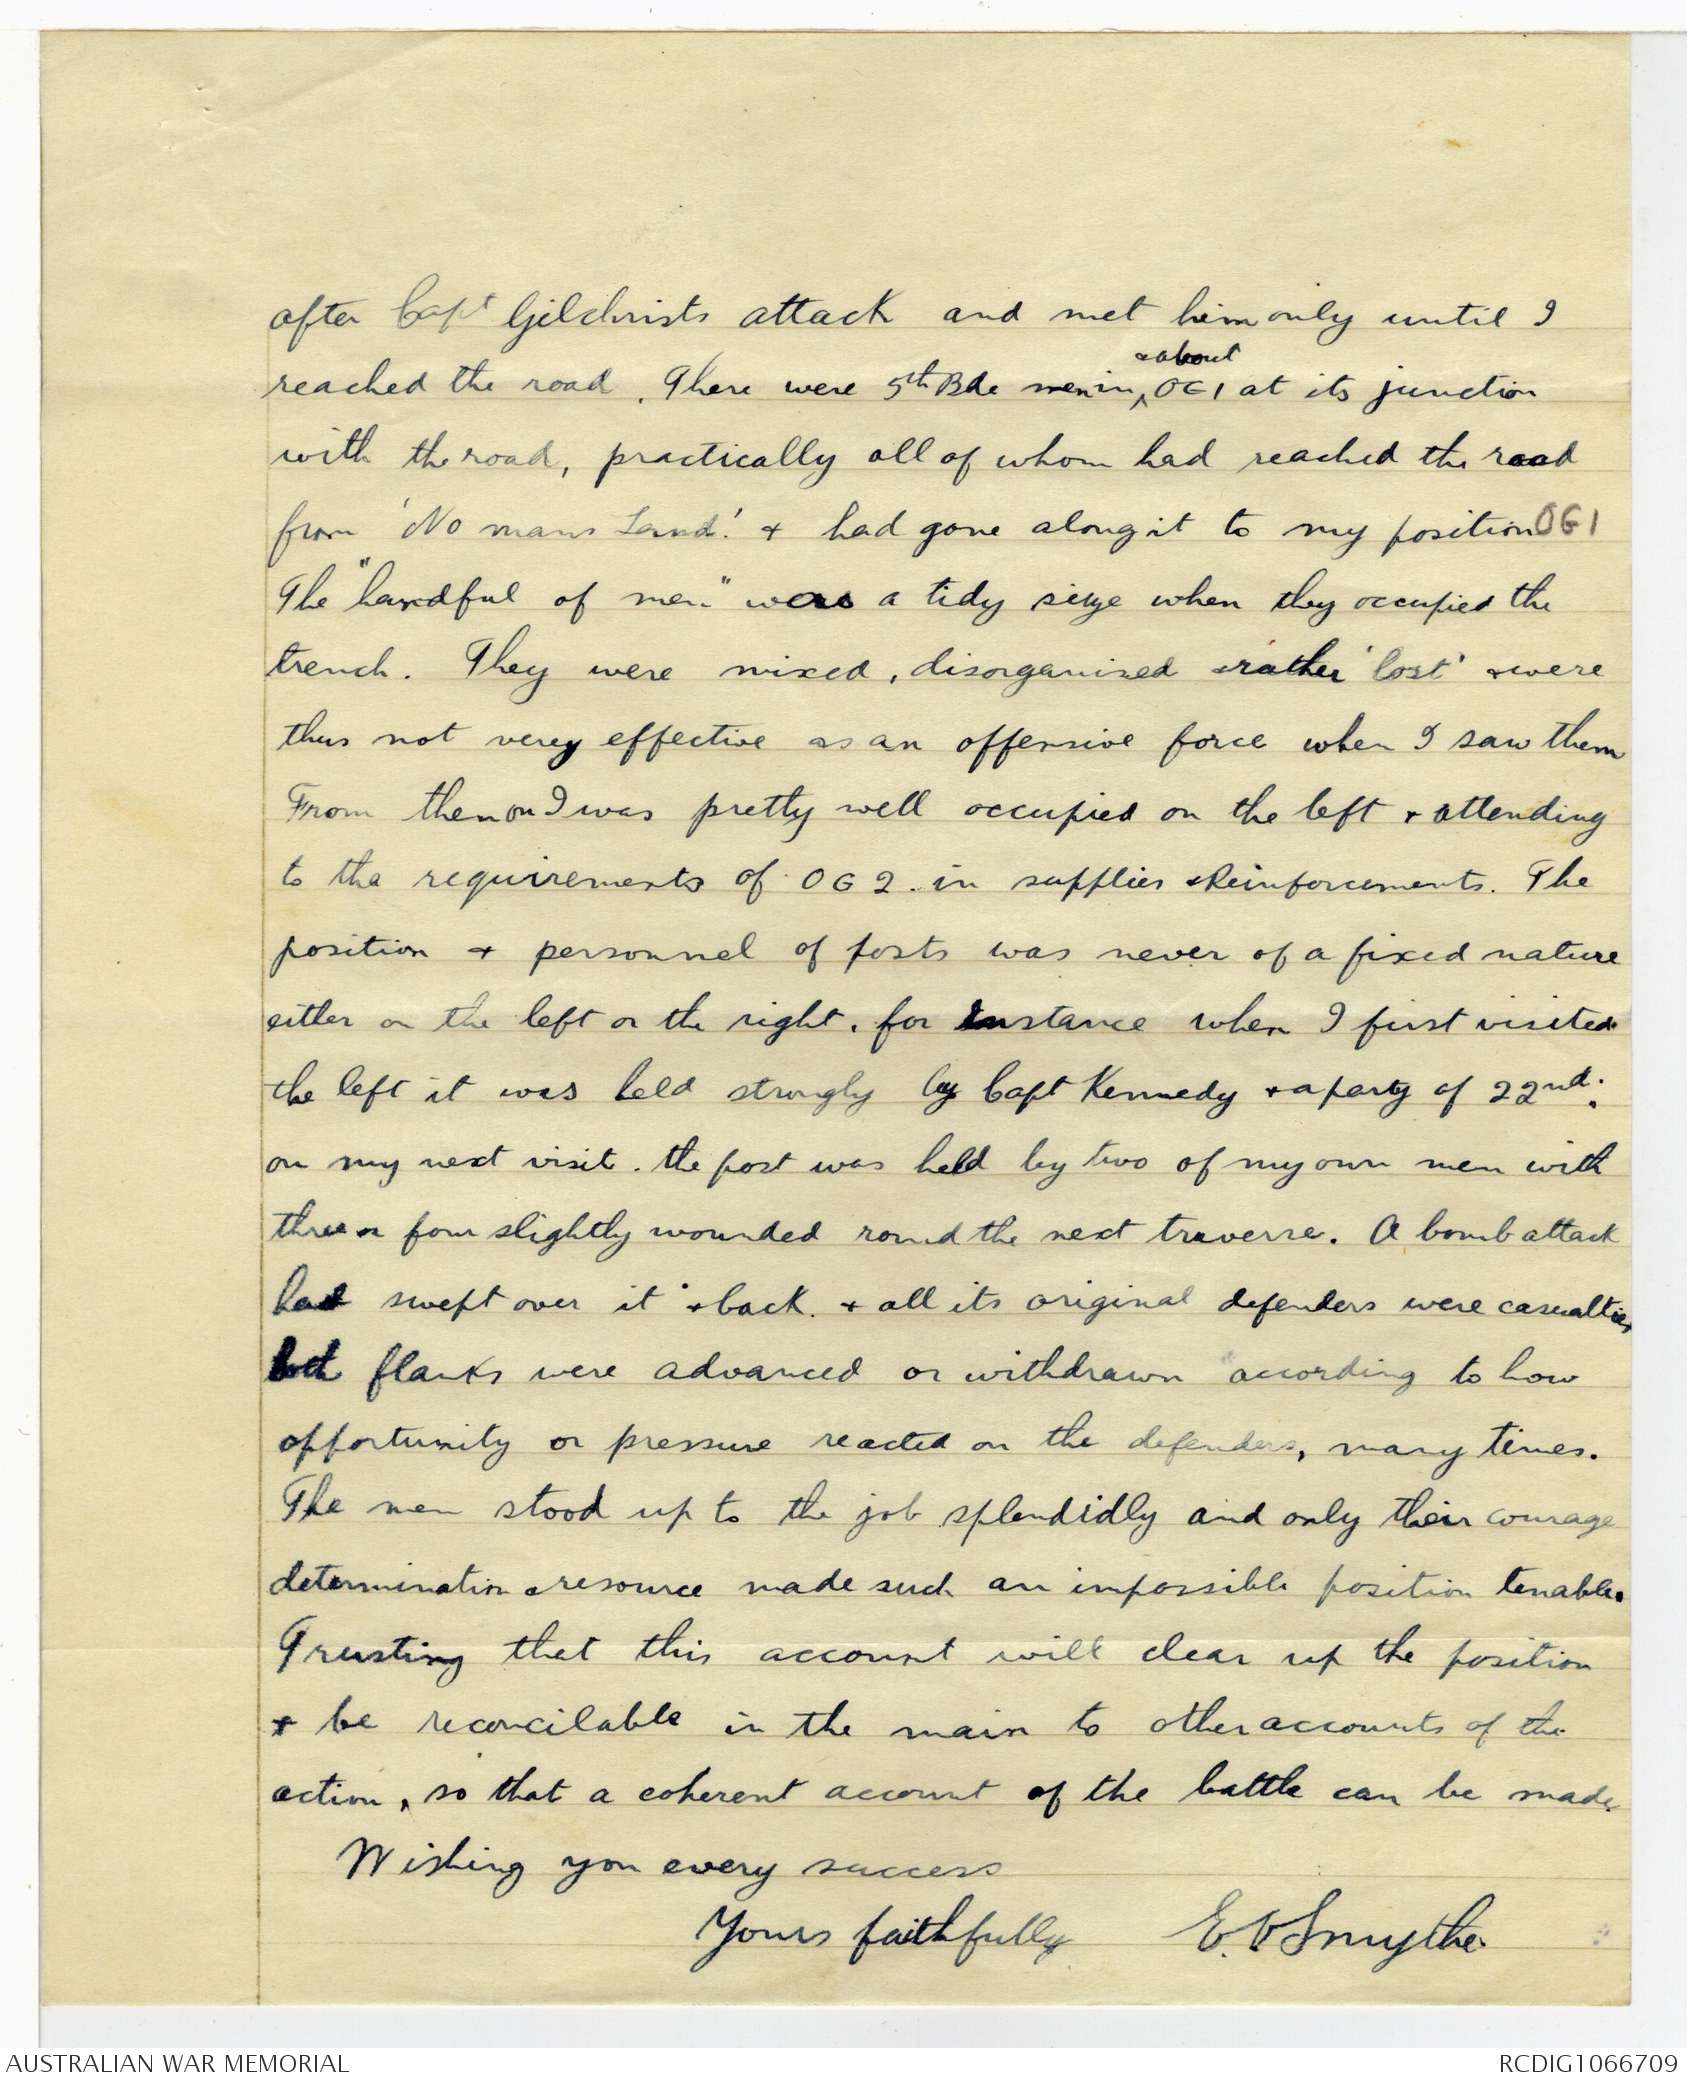 after Capt Gilchrists attack and met him only until I
reached the road. There were 5th Bde men in, & about OG1 at its junction
with the road, practically all of whom had reached the road
from 'No mans Land'. & had gone along it to my position OG1
The "handful of men" was a tidy size when they occupied the
trench. They were mixed, disorganised & rather 'lost' & were
thus not very effective as an offensive force when I saw them
From then on I was pretty well occupied on the left & attending
to the requirements of OG2. in supplies & Reinforcements. The
position & personnel of posts was never of a fixed nature
either on the left or the right, for instance when I first visited
the left it was held strongly by Capt Kennedy & a party of 22nd:
on my next visit. the post was held by two of my own men with
three or four slightly wounded round the next traverse. A bomb attack
had swept over it & back. & all its original defenders were casualties
both flanks were advanced or withdrawn according to how
opportunity or pressure reacted on the defenders, many times.
The men stood up to the job splendidly and only their courage
determination & resource made such an impossible position tenable.
Trusting that this account will clear up the position
& be reconcilable in the main to other accounts of the
action, so that a coherent account of the battle can be made.
Wishing you every success
Yours faithfully E. V Smythe.
AUSTRALIAN WAR MEMORIAL RCDIG1066709